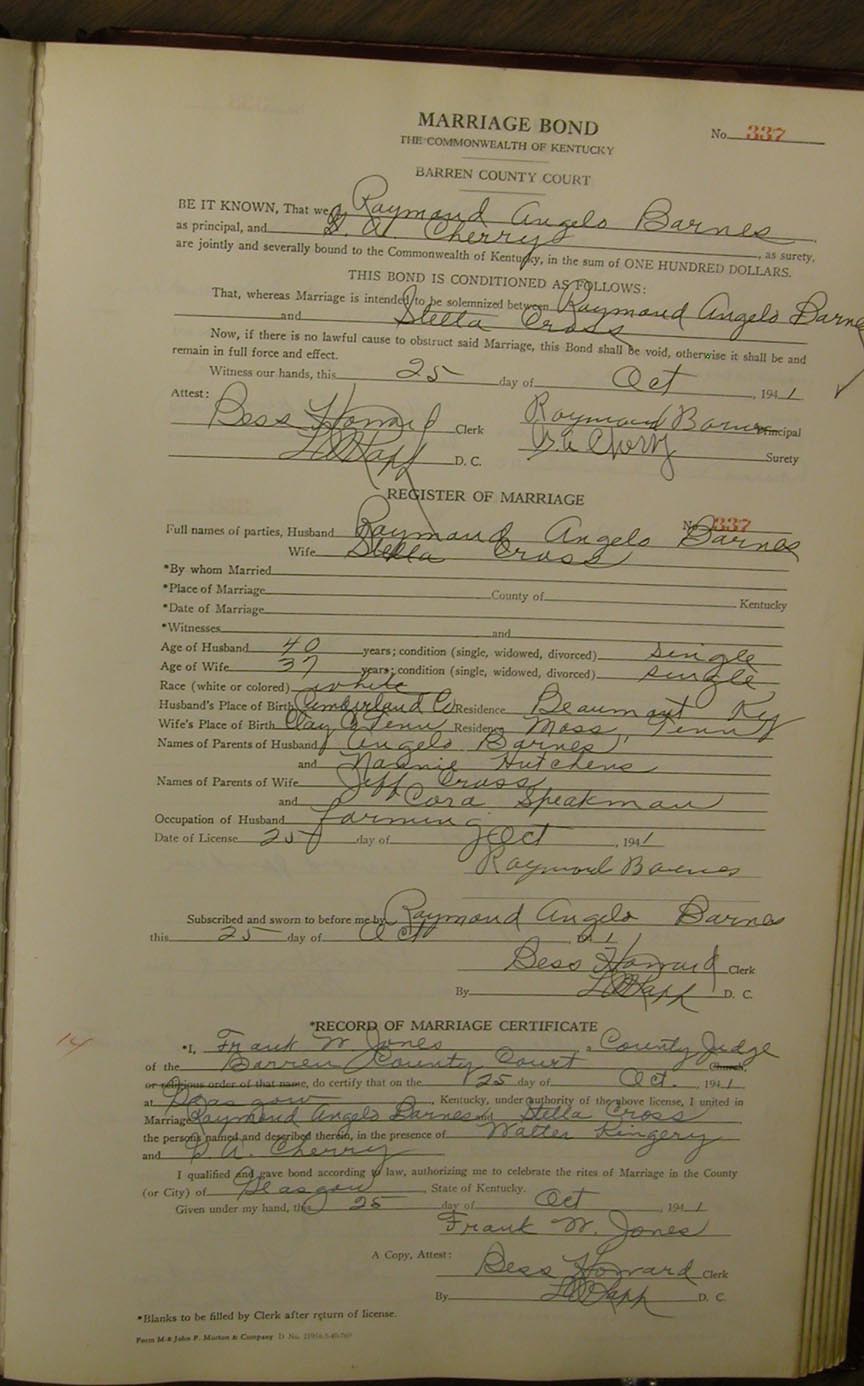 MARRIAGE BOND
No. 337
THE COMMONWEALTH OF KENTUCKY
BARREN COUNTY COURT
BE IT KNOWN, That we, Raymond Angelo Barnes
as principal, and Cherry, as surety,
are jointly and severally bound to the Commonwealth of Kentucky, in the sum of ONE HUNDRED DOLLARS.
THIS BOND IS CONDITIONED AS FOLLOWS:
That, whereas Marriage is intended to be solemnized between Raymond Angelo Barnes
and Stella Cross
Now, if there is no lawful cause to obstruct said Marriage, this Bond shall be void, otherwise it shall be and
remain in full force and effect.
Witness our hands, this 25 day of Oct, 1941
Attest:
Bess Howard Clerk Raymond Barnes Principal
D. C. Cherry Surety
REGISTER OF MARRIAGE
No. 337
Full names of parties, Husband Raymond Angelo Barnes
Wife Stella Cross
*By whom Married
*Place of Marriage County of Kentucky
*Date of Marriage
*Witnesses and
Age of Husband 40 years; condition (single, widowed, divorced) single
Age of Wife 37 years; condition (single, widowed, divorced) single
Race (white or colored) white
Husband's Place of Birth Cumberland Co Residence Beaumont Ky
Wife's Place of Birth Clay Co Tenn Residence Moss, Tenn
Names of Parents of Husband Angelo Barnes
and Nannie Hutchens
Names of Parents of Wife Jeff Cross
and Cora Speakman
Occupation of Husband farming
Date of License 25 day of Oct, 1941
Raymond Barnes
Subscribed and sworn to before me by Raymond Angelo Barnes
this 25 day of Oct, 1941
Bess Howard Clerk
By D. C.
14
*RECORD OF MARRIAGE CERTIFICATE
*I, Frank W Jones a County Judge
of the Barren County Court Church,
or religious order of that name, do certify that on the 25 day of Oct. 1941
at Glasgow, Kentucky, under authority of the above license, I united in
Marriage Raymond Angelo Barnes and Stella Cross
the persons named and described therein, in the presence of Walter Kingery
and Cherry
I qualified and gave bond according to law, authorizing me to celebrate the rites of Marriage in the County
(or City) of Glasgow, State of Kentucky.
Given under my hand, this 25 day of Oct, 1941
Frank W. Jones
A Copy, Attest:
Bess Howard Clerk
By D. C.
*Blanks to be filled by Clerk after return of license.
Form M-8 John P. Morton & Company